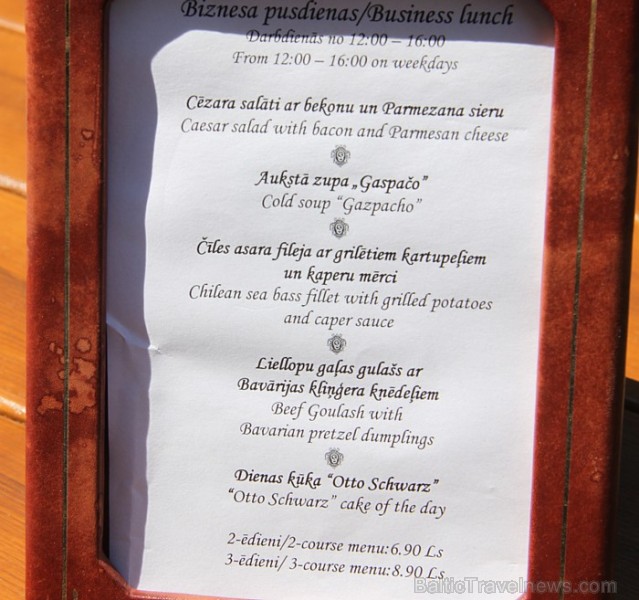 Biznesa pusdienas/Business lunch
Darbdienās no 12:00 – 16:00
From 12:00 – 16:00 on weekdays
Cēzara salāti ar bekonu un Parmezana sieru
Caesar salad with bacon and Parmesan cheese
Aukstā zupa „Gaspačo”
Cold soup “Gazpacho”
Čīles asara fileja ar grilētiem kartupeļiem
un kaperu mērci
Chilean sea bass fillet with grilled potatoes
and caper sauce
Liellopu gaļas gulašs ar
Bavārijas kliņģera knēdeļiem
Beef Goulash with
Bavarian pretzel dumplings
Dienas kūka “Otto Schwarz”
“Otto Schwarz” cake of the day
2-ēdieni/2-course menu:6.90 Ls
3-ēdieni/ 3-course menu:8.90 Ls
BalticTravelnews.com